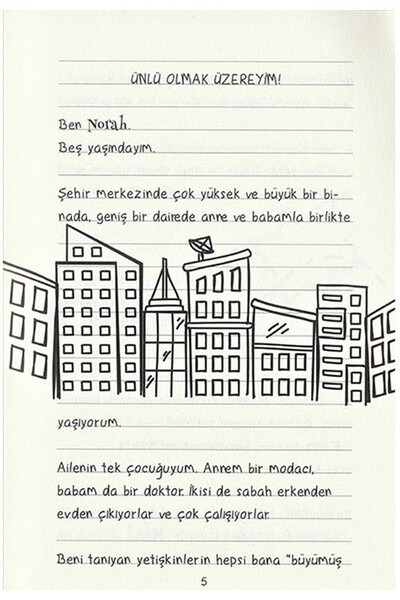 ÜNLÜ OLMAK ÜZEREYİM!
Ben Norah.
Beş yaşındayım.
Şehir merkezinde çok yüksek ve büyük bir bi-
nada, geniş bir dairede anne ve babamla birlikte
yaşıyorum.
Ailenin tek çocuğuyum. Annem bir modacı,
babam da bir doktor. İkisi de sabah erkenden
evden çıkıyorlar ve çok çalışıyorlar.
Beni tanıyan yetişkinlerin hepsi bana “büyümüş
5